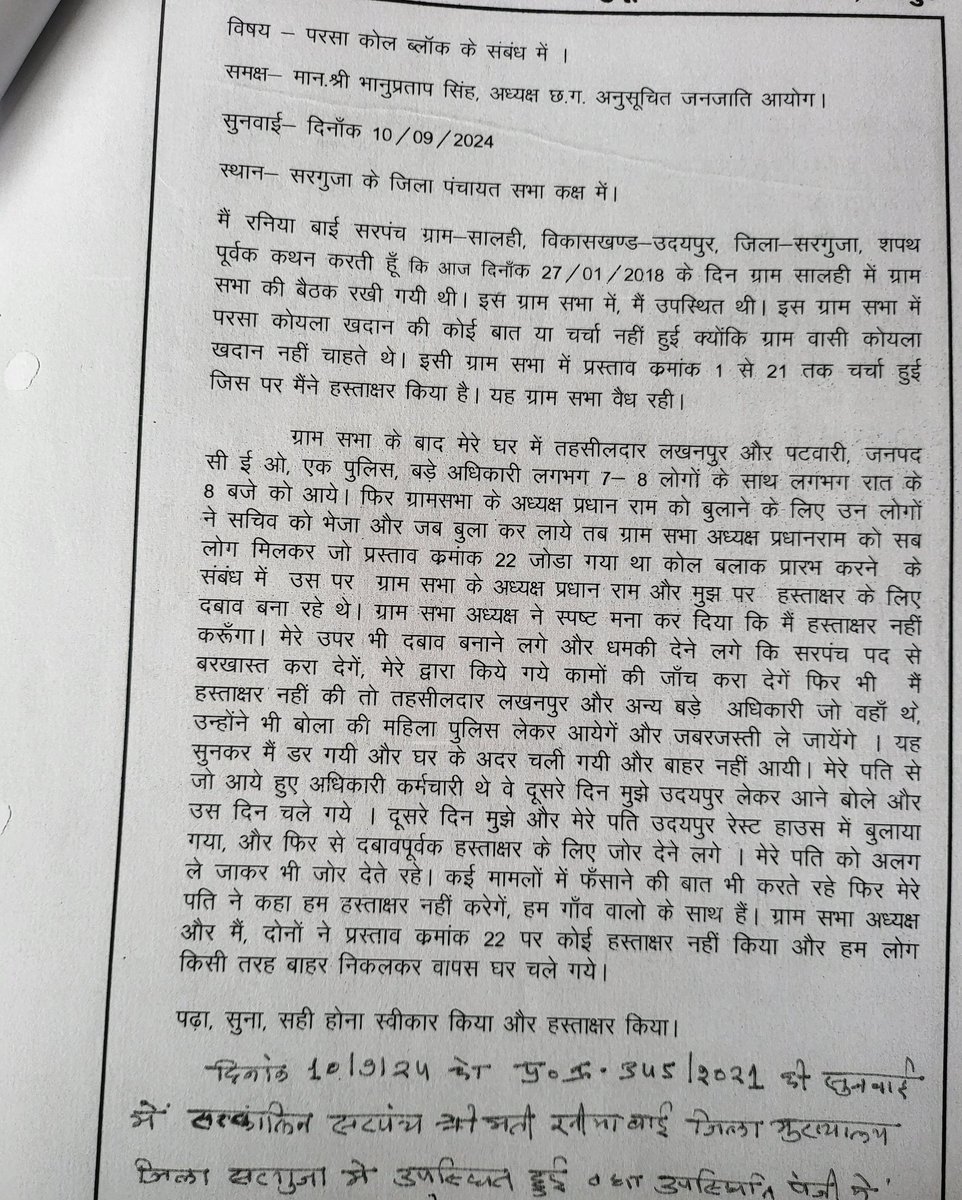 विषय – परसा कोल ब्लॉक के संबंध में ।
समक्ष– मान.श्री भानुप्रताप सिंह, अध्यक्ष छ.ग. अनुसूचित जनजाति आयोग।
सुनवाई– दिनाँक 10/09/2024
स्थान– सरगुजा के जिला पंचायत सभा कक्ष में।
मैं रनिया बाई सरपंच ग्राम–सालही, विकासखण्ड–उदयपुर, जिला–सरगुजा, शपथ
पूर्वक कथन करती हूँ कि आज दिनाँक 27/01/2018 के दिन ग्राम सालही में ग्राम
सभा की बैठक रखी गयी थी। इस ग्राम सभा में, मैं उपस्थित थी। इस ग्राम सभा में
परसा कोयला खदान की कोई बात या चर्चा नहीं हुई क्योंकि ग्राम वासी कोयला
खदान नहीं चाहते थे। इसी ग्राम सभा में प्रस्ताव क्रमांक 1 से 21 तक चर्चा हुई
जिस पर मैंने हस्ताक्षर किया है। यह ग्राम सभा वैध रही।
ग्राम सभा के बाद मेरे घर में तहसीलदार लखनपुर और पटवारी, जनपद
सी ई ओ, एक पुलिस, बड़े अधिकारी लगभग 7– 8 लोगों के साथ लगभग रात के
8 बजे को आये। फिर ग्रामसभा के अध्यक्ष प्रधान राम को बुलाने के लिए उन लोगों
ने सचिव को भेजा और जब बुला कर लाये तब ग्राम सभा अध्यक्ष प्रधानराम को सब
लोग मिलकर जो प्रस्ताव क्रमांक 22 जोडा गया था कोल बलाक प्रारभ करने के
संबंध में उस पर ग्राम सभा के अध्यक्ष प्रधान राम और मुझ पर हस्ताक्षर के लिए
दबाव बना रहे थे। ग्राम सभा अध्यक्ष ने स्पष्ट मना कर दिया कि मैं हस्ताक्षर नहीं
करूँगा। मेरे उपर भी दबाव बनाने लगे और धमकी देने लगे कि सरपंच पद से
बरखास्त करा देगें, मेरे द्वारा किये गये कामों की जाँच करा देगें फिर भी मैं
हस्ताक्षर नहीं की तो तहसीलदार लखनपुर और अन्य बड़े अधिकारी जो वहाँ थे,
उन्होंने भी बोला की महिला पुलिस लेकर आयेगें और जबरजस्ती ले जायेंगे । यह
सुनकर मैं डर गयी और घर के अदर चली गयी और बाहर नहीं आयी। मेरे पति से
जो आये हुए अधिकारी कर्मचारी थे वे दूसरे दिन मुझे उदयपुर लेकर आने बोले और
उस दिन चले गये । दूसरे दिन मुझे और मेरे पति उदयपुर रेस्ट हाउस में बुलाया
गया, और फिर से दबावपूर्वक हस्ताक्षर के लिए जोर देने लगे । मेरे पति को अलग
ले जाकर भी जोर देते रहे। कई मामलों में फँसाने की बात भी करते रहे फिर मेरे
पति ने कहा हम हस्ताक्षर नहीं करेगें, हम गाँव वालो के साथ हैं। ग्राम सभा अध्यक्ष
और मैं, दोनों ने प्रस्ताव क्रमांक 22 पर कोई हस्ताक्षर नहीं किया और हम लोग
किसी तरह बाहर निकलकर वापस घर चले गये।
पढ़ा, सुना, सही होना स्वीकार किया और हस्ताक्षर किया।
दिनांक 10/9/24 को प्र.क्र. 345/2021 की सुनवाई
में सरपंच श्रीमती बाई जिला मुख्यालय
जिला सरगुजा में उपस्थित हुई तथा उपस्थिति पंजी में